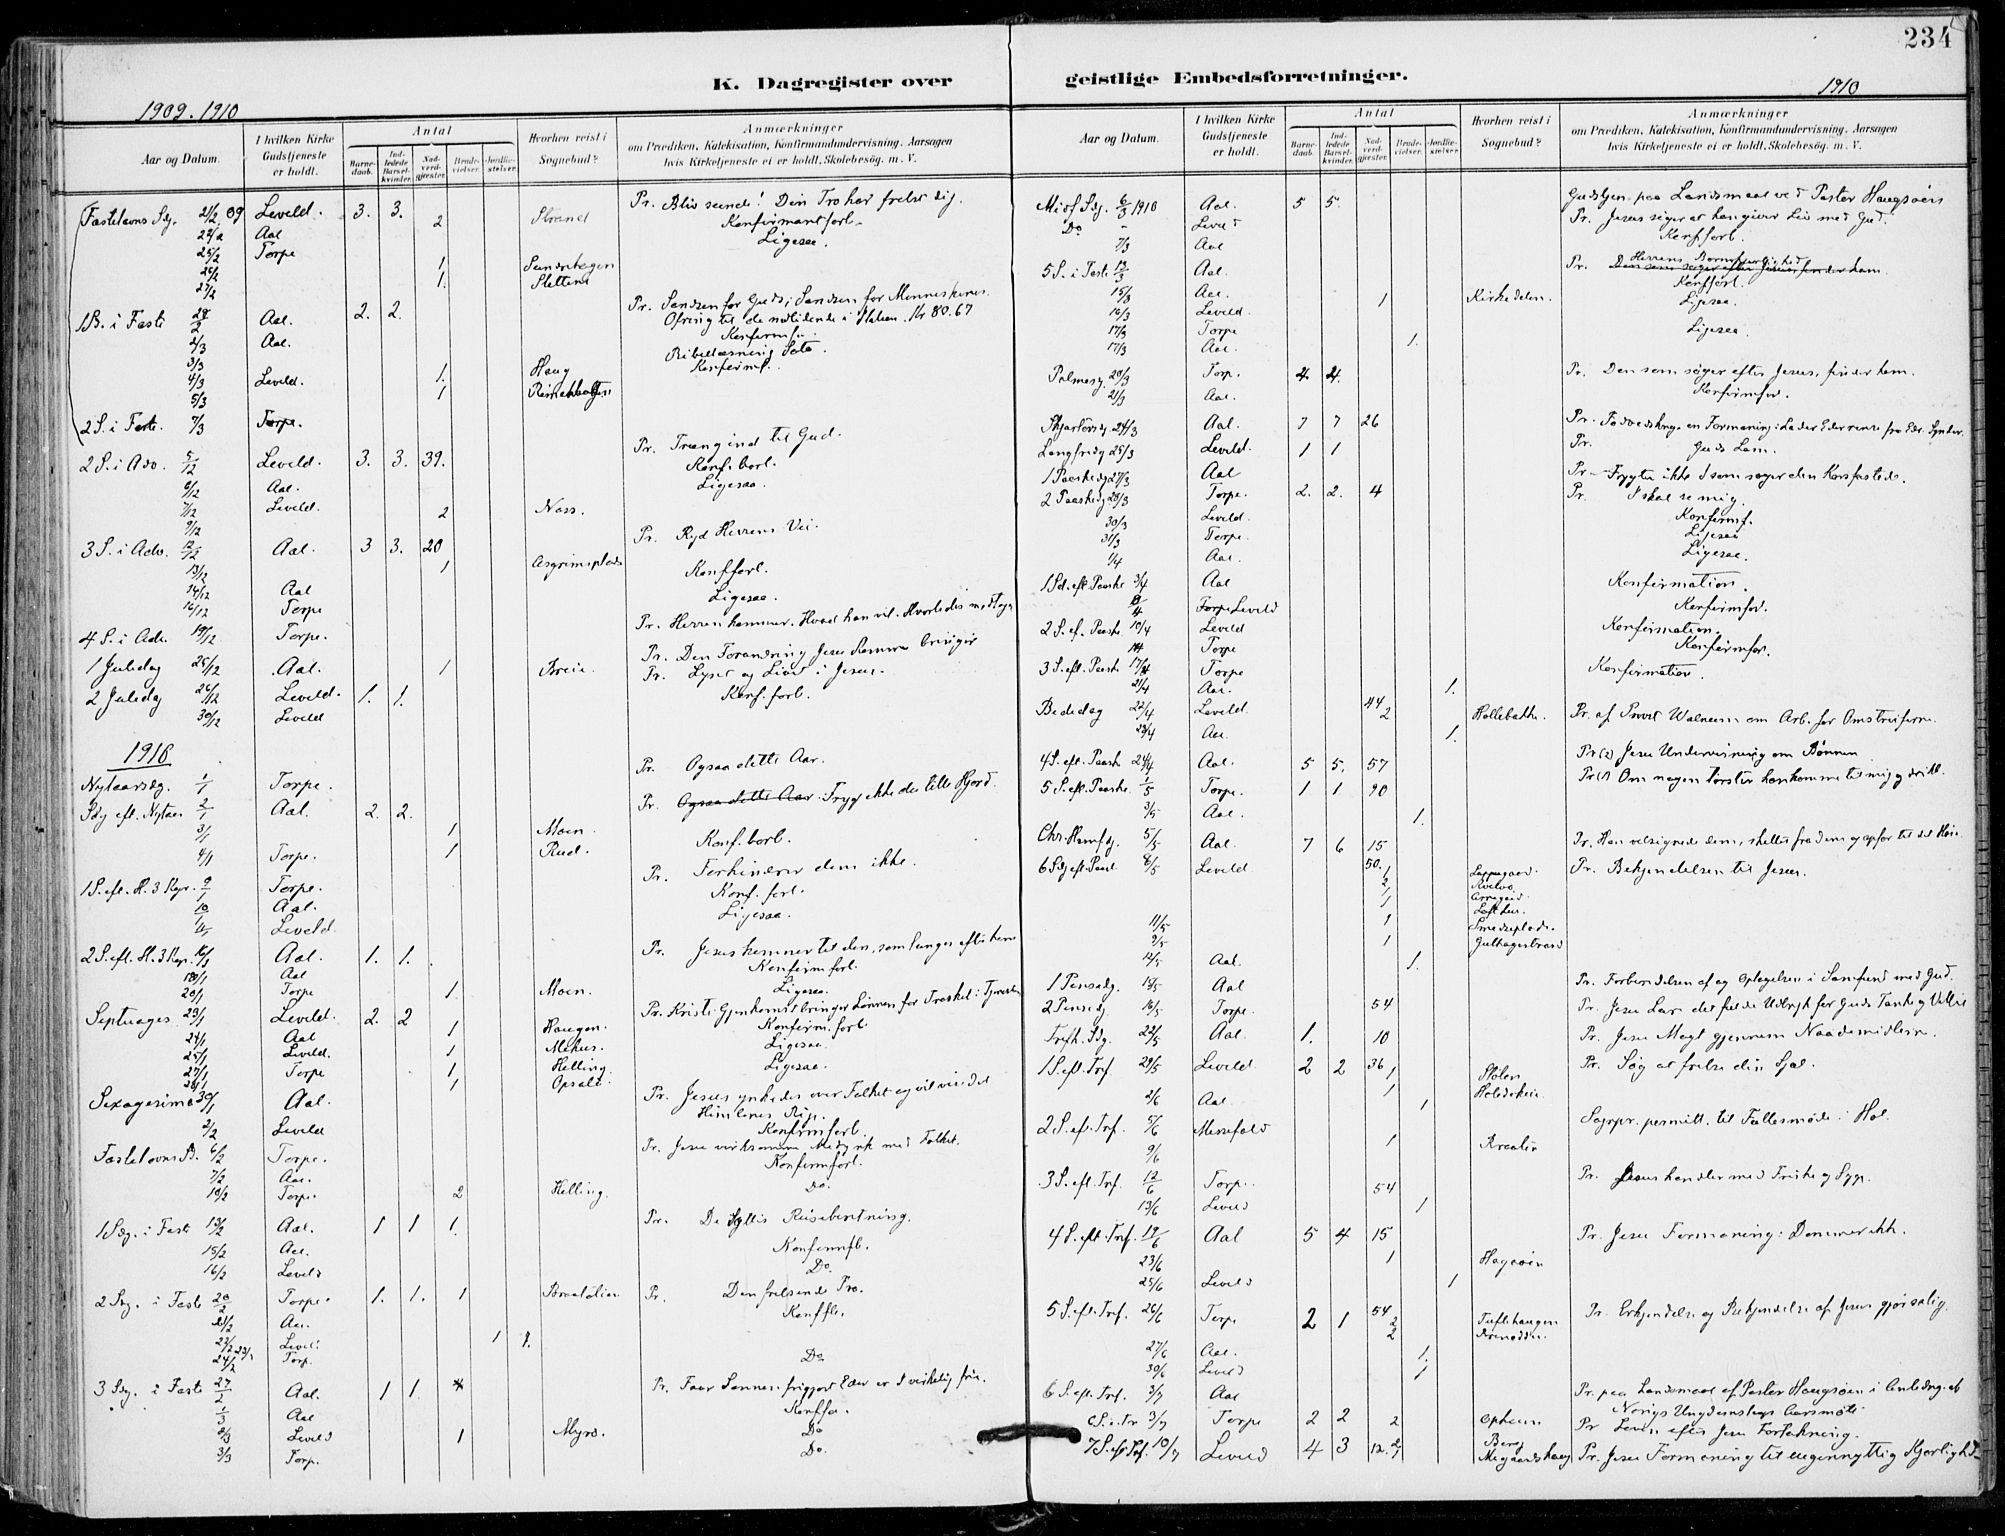 234
K. Dagregister over geistlige Embedsforretninger.
1909. 1910
1910
Aar og Datum. I hvilken Kirke Gudstjeneste er holdt. Antal Barnedaab. Indledede Barselkvinder. Nadverdgjester. Brudevielser. Jordfæstelser. Hvorhen reist i Sognebud? Anmærkninger om Prædiken, Katekisation, Konfirmandundervisning. Aarsagen hvis Kirketjeneste ei er holdt. Skolebesøg. m. V.
Fastelavns Sdg. 21/2 09 Leveld. 3. 3. 2 Strand Pr. Bliv seende! Din Tro har frelst dig.
22/2 Aal Konfirmantforb.
25/2 Torpe Ligesaa.
26/2 1. Sundrehagen
27/2 1. Slettene
1 S. i Faste 28/2 Aal. 2. 2. Pr. Sendsen for Guds, Sendsen for Menneskenes.
Ofring til de nødlidende i Italien. Kr 80.67
2/3 Aal. Konfirmf.
3/3 1. Haug Bibellæsning Sato.
4/3 Leveld. 1 Konfirmf.
5/3
2 S. i Faste. 7/3 Torpe.
2 S. i Adv. 5/12 Leveld. 3. 3. 39. Pr. Træng ind til Gud.
6/12 Aal. Konf. forb.
7/12 Leveld. Ligesaa.
9/12 2 Noss.
3 S. i Adv. 12/12 Aal. 3 3. 20 Pr. Ryd Herrens Vei.
13/12 1 Asgrimsplads
14/12 Aal Konfforb.
16/12 Torpe Ligesaa.
4 S. i Adv. 19/12 Torpe. Pr. Herren kommer. Hvad han vil. Hvorledes modtages
1 Juledag 25/12 Aal. 1 Breie. Pr. Den Forandring Jesu Komme bringer
2 Juledag 26/12 Leveld. 1. 1. Pr. Lyset og Livet i Jesus.
30/12 Leveld Konf. forb.
1910
Nytaarsdg. 1/1 Torpe. Pr. Ogsaa dette Aar.
Sdg eft. Nytaar 2/1 Aal. 2. 2. Pr. Ogsaa dette Aar. Frygt ikke du lille Hjord.
3/1 1 Moen.
4/1 Torpe. 1 Rud. Konf. forb.
1 S. eft. H. 3 Kgr. 9/1 Torpe. Pr. Forhindrer dem ikke.
10/1 Aal. Konf. forb.
11/1 Leveld. Ligesaa.
2 S. eft. H. 3 Kgr. 16/1 Aal. 1. 1. Pr. Jesus kommer til den, som længes efter ham
18/1 Aal Konfirmforb.
20/1 Torpe 1. Moen. Ligesaa.
Septuages 23/1 Leveld. 2. 2 Pr. Kristi Gjenkomst bringer Lønnen for Troskab i Tjenesten
24/1 Aal 1 Haugen. Konfirm. forb.
25/1 Leveld. 1 Mehus. Ligesaa.
27/1 Torpe 1 Helling. Ligesaa.
28/1 1 Opsata.
Sexagesima 30/1 Aal. Pr. Jesus ynkedes over Folket og vil vinde det
Himlenes Rige.
2/2 Leveld Konfirmforb.
Fastelavns S. 6/2 Torpe. Pr. Jesu virksomme Medynk med Folket.
7/2 Aal. Konfirmforb.
10/2 Torpe. 2 Helling. Do.
1 Sdg. i Faste 13/2 Aal. 1 1 1. Pr. De Syttis Reiseberetning.
15/2 Aal. Konfirmfb.
16/2 Leveld Do.
2 Sdg. i Faste 20/2 Torpe. 1. 1. 1 Braatalien Pr. Den frelsende Tro.
21/2 Aal. Konffb.
22/2 23/2 Leveld 1 1.
24/2 Torp. Do
3 Sdg. i Faste 27/2 Aal. 1 1. Pr. Faar Sønnen frigjort Eder er I virkelig frie.
1/3 Aal Konffor.
2/3 Leveld 1 Myro. Do
3/3 Torp. Do.
Aar og Datum. I hvilken Kirke Gudstjeneste er holdt. Antal Barnedaab. Indledede Barselkvinder. Nadverdgjester. Brudevielser. Jordfæstelser. Hvorhen reist i Sognebud? Anmærkninger om Prædiken, Katekisation, Konfirmandundervisning. Aarsagen hvis Kirketjeneste ei er holdt. Skolebesøg. m. V.
Gudstjen. paa Landsmaal ved Pastor Haugsøen
Midf. Sdg. 6/3 1910 Aal. 5 5. Pr. Jesus siger at han giver Liv med Gud.
Do - Leveld
7/3 Aal Konfforb.
5 S. i Faste 13/3 Aal. Pr. Herrens Barmhjertighed Den som søger efter Jesus finder ham.
15/3 Aal. 1 Kirkedelen. Konfforb.
16/3 Leveld. Ligesaa.
17/3 Torpe Ligesaa
17/3 Aal. 1.
Palmesg. 20/3 Torp. 4 4. Pr. Den som søger efter Jesus, finder ham.
21/3 Aal. Konfirmfor.
Skjærtorsdg. 24/3 Aal. 7 7 26 Pr. Fodvadskning en Formaning: Lader Eder rense fra Edr. Synder.
Langfredg 25/3 Leveld. 1 1 Pr. Guds Lam.
1 Paaskedg 27/3 Aal Pr. Frygter ikke I som søger den Korsfæstede.
2 Paaskedg 28/3 Torpe. 2. 2. 4 Pr. I skal se mig.
30/3 Leveld. Konfirmf.
31/3 Torpe. Ligesaa
1/4 Aal. Ligesaa.
1 Sd. eft. Paaske 3/4 Aal Konfirmation.
8/4 Torpe Leveld Konfirmfor.
2 S. ef. Paaske. 10/4 Leveld Konfirmation.
14 Torpe Konfirmfor.
3 S. eft. Paaske 17/4 Torpe Konfirmation.
21/4 Aal. 1.
Bededag 22/4 Leveld. 44 2 Hollebakke. Pr. af Provst Walnum om Arb. for Omstreiferne.
23/4 Aal. 1.
4 S. eft. Paaske 24/4 Aal. 5 5. 57 Pr (2) Jesu Undervisning om Bønnen
5 S. eft. Paaske. 1/5 Torpe. 1 1 90 Pr (1) Om nogen tørster han komme til mig og drikk.
3/5 Aal. 1.
Chr. Himmf dg. 5/5 Aal. 7 6 15 Pr. Han velsignede dem, skiltes fra dem og opfor til det Høie.
6 Sdg eft. Paask 8/5 Leveld. 50. 1 Leppegaard. Pr. Bekjendelsen til Jesus.
2 Kvelvo
1 Arnegard.
1 Lofthus.
11/5 1 Smedsplads
9/5 1 Gulhagestrand
12/5 Aal. 1.
1 Pinsedg. 15/5 Aal Pr. Forberedelsen af og Optagelsen i Samfund med Gud.
2 Pinsedg. 16/5 Torpe. 54 Pr. Jesu Lære det fulde Udtryk for Guds Tanke og Villie
Trefh. Sdg. 22/5 Aal. 1. 10 Pr. Jesu Magt gjennem Naademidlerne.
1 S. eft. Tref. 29/5 Leveld. 2 2 36 1 Stølen Pr. Søg at frelse din Sjæl.
1
2/6 Aal. 1
2 S. ef. Tref. 5/6 Messefald Sogpr. permitt. til Fællesmøde i Hol.
9/6 1
3 S. eft. Tref. 12/6 Torpe. 54 Pr. Jesus handler med Friske og Syge.
13/6 Leveld 1
4 S. eft. Tref. 19/6 Aal 5 4 15 Pr. Jesu Formaning: Dømmer ikke.
23/6 1 Hagaøen
25/6 Leveld 1
5 S. eft. Tref. 26/6 Torpe 2 1 54 2 Tuftehaugen Pr. Erkjendelse og Bekjendelse af Jesus gjør salig.
2
27/6 Aal. 1.
30/6 Leveld 1
6 S. eft. Tref. 3/7 Aal Pr. paa Landsmaal af Pastor Haugsøen i Anledng. af
Norigs Ungdomslags Aarsmøte.
6 S. e. Tr 3/7 Torpe 2 2 2 Opheim Pr Leven efter Jesu Forsikring.
7 S. ef. Tref. 10/7 Leveld 4 3 12. 2 Berg Megaardshaug Pr. Jesu Formaning til uegennyttig Kjærlighed